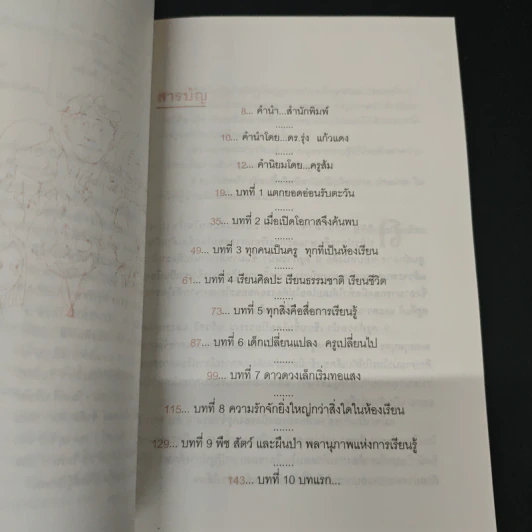 สารบัญ
8... คำนำ...สำนักพิมพ์
.......
10... คำนำโดย...ดร.รุ่ง แก้วแดง
.......
12... คำนิยมโดย...ครูส้ม
.......
19... บทที่ 1 แตกยอดอ่อนรับตะวัน
.......
35... บทที่ 2 เมื่อเปิดโอกาสจึงค้นพบ
.......
49... บทที่ 3 ทุกคนเป็นครู ทุกที่เป็นห้องเรียน
.......
61... บทที่ 4 เรียนศิลปะ เรียนธรรมชาติ เรียนชีวิต
.......
73... บทที่ 5 ทุกสิ่งคือสื่อการเรียนรู้
.......
87... บทที่ 6 เด็กเปลี่ยนแปลง ครูเปลี่ยนไป
.......
99... บทที่ 7 ดาวดวงเล็กเริ่มทอแสง
.......
115... บทที่ 8 ความรักจักยิ่งใหญ่กว่าสิ่งใดในห้องเรียน
.......
129... บทที่ 9 พืช สัตว์ และผืนป่า พลานุภาพแห่งการเรียนรู้
.......
143... บทที่ 10 บทแรก...